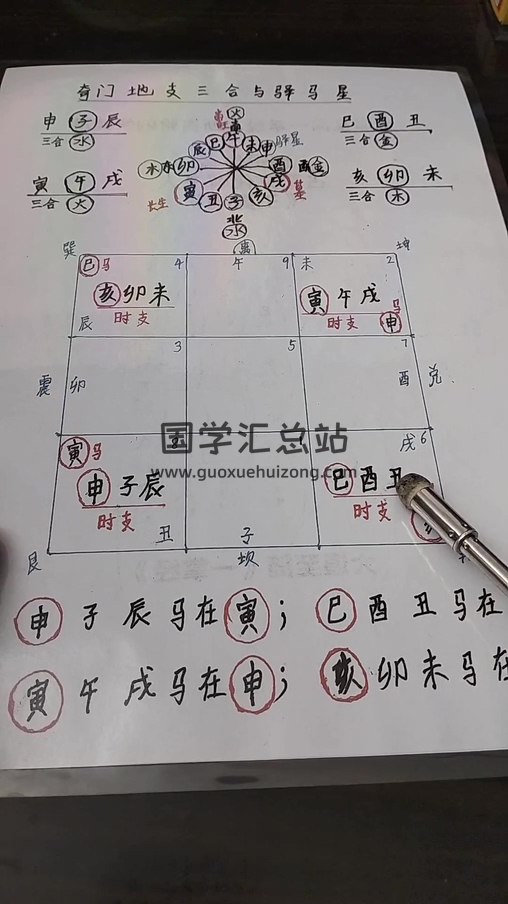 奇门地支三合与驿马星
申子辰
三合水
巳酉丑
三合金
寅午戌
三合火
亥卯未
三合木
火
南
午
辰巳
未申
驿星
水木卯
酉
酉金
寅
丑子亥
戌
长生
墓
北
水
巽
离
坤
巳马
4
午
9
未
2
亥卯未
时支
辰
寅午戌
时支
马
申
震
卯
3
5
7
酉
兑
国学汇总站
www.guoxuehuizong.com
寅马
8
1
戌6
申子辰
时支
丑
巳酉丑
时支
亥
艮
子
坎
申子辰马在寅；巳酉丑马在
寅午戌马在申；亥卯未马在